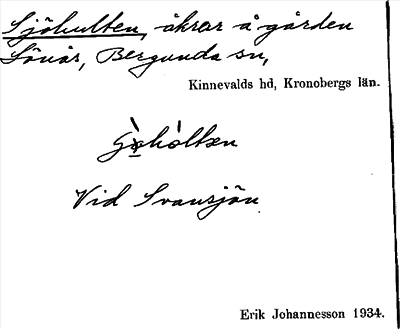 Sjöhulten, åkrar å gården
Sönår, Bergunda sn,
Kinnevalds hd, Kronobergs län.
Vid Svansjön
Erik Johannesson 1934.